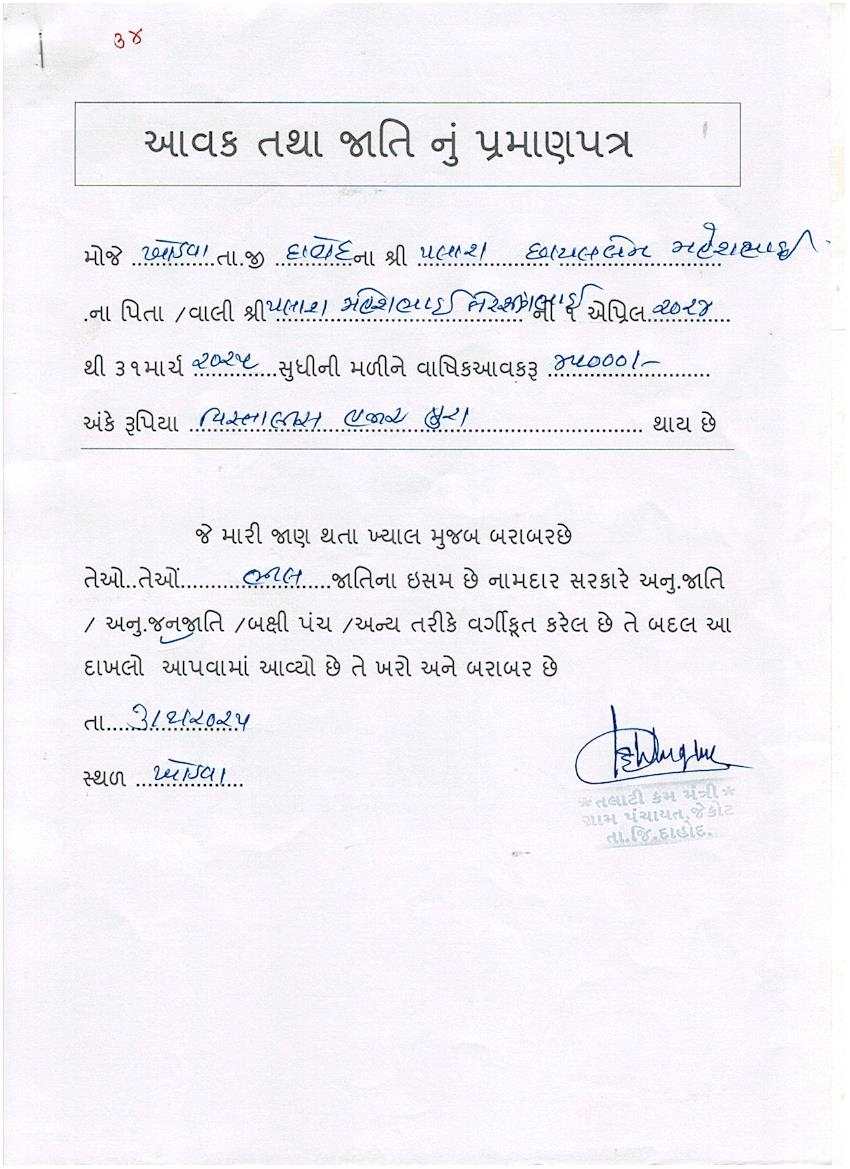 ૩૪
આવક તથા જાતિ નું પ્રમાણપત્ર
મોજે ખોડવા તા.જી દાહોદ ના શ્રી પલાશ મહેશભાઈ
.ના પિતા /વાલી શ્રી પલાશ મહેશભાઈ ની ૧ એપ્રિલ ૨૦૨૪
થી ૩૧માર્ચ ૨૦૨૫ સુધીની મળીને વાષિકઆવકરૂ ૪૫૦૦૦/-
અંકે રૂપિયા પિસ્તાલીસ હજાર પુરા થાય છે
જે મારી જાણ થતા ખ્યાલ મુજબ બરાબરછે
તેઓ..તેઓં ભીલ જાતિના ઇસમ છે નામદાર સરકારે અનુ.જાતિ
/ અનુ.જનજાતિ /બક્ષી પંચ /અન્ય તરીકે વર્ગીકૃત કરેલ છે તે બદલ આ
દાખલો આપવામાં આવ્યો છે તે ખરો અને બરાબર છે
તા.
સ્થળ ખોડવા
*તલાટી કમ મંત્રી*
ગ્રામ પંચાયત,જેકોટ
તા.જિ.દાહોદ.